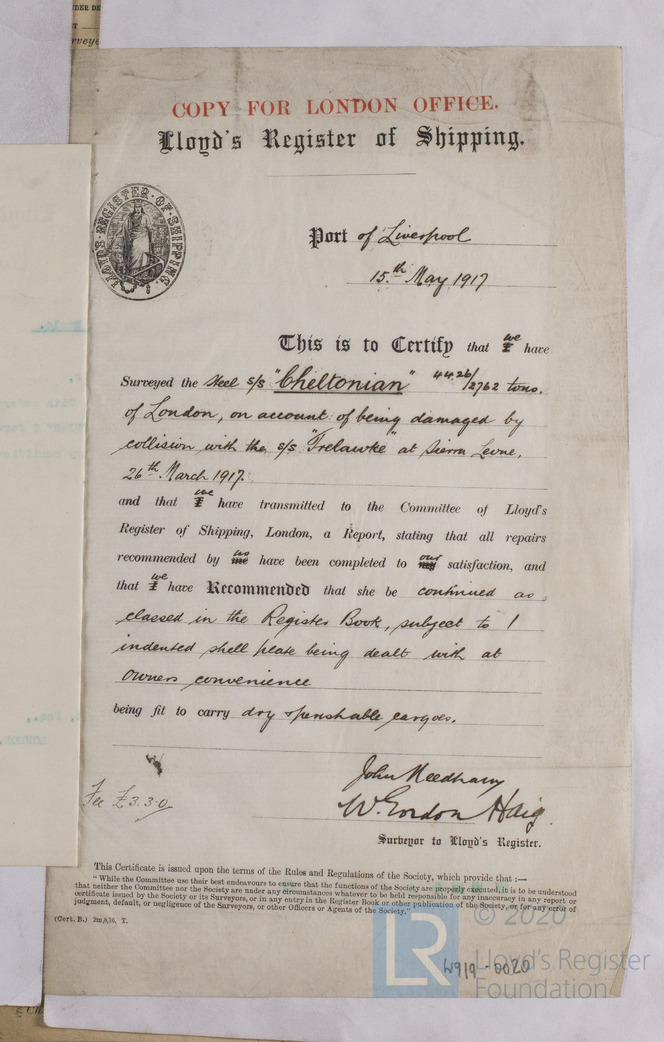 COPY FOR LONDON OFFICE.
Lloyd's Register of Shipping.
LLOYD'S · REGISTER · OF · SHIPPING.
Port of Liverpool
15th May 1917
This is to Certify that I we have
Surveyed the steel s/s "Cheltonian" 4426/2762 tons.
of London, on account of being damaged by
collision with the s/s "Trelawke" at Sierra Leone,
26th March 1917.
and that I we have transmitted to the Committee of Lloyd's
Register of Shipping, London, a Report, stating that all repairs
recommended by me us have been completed to my our satisfaction, and
that I we have Recommended that she be continued as
classed in the Register Book, subject to 1
indented shell plate being dealt with at
Owners convenience
being fit to carry dry & perishable cargoes.
John Needham
W. Gordon Haig
Fee £3.3.0
Surveyor to Lloyd's Register.
This Certificate is issued upon the terms of the Rules and Regulations of the Society, which provide that :—
"While the Committee use their best endeavours to ensure that the functions of the Society are properly executed, it is to be understood
that neither the Committee nor the Society are under any circumstances whatever to be held responsible for any inaccuracy in any report or
certificate issued by the Society or its Surveyors, or in any entry in the Register Book or other publication of the Society, or for any error of
judgment, default, or negligence of the Surveyors, or other Officers or Agents of the Society."
(Cert. B.) 2m,8,16, T.
© 2020
LR
Lloyd's Register
Foundation
W919-0020